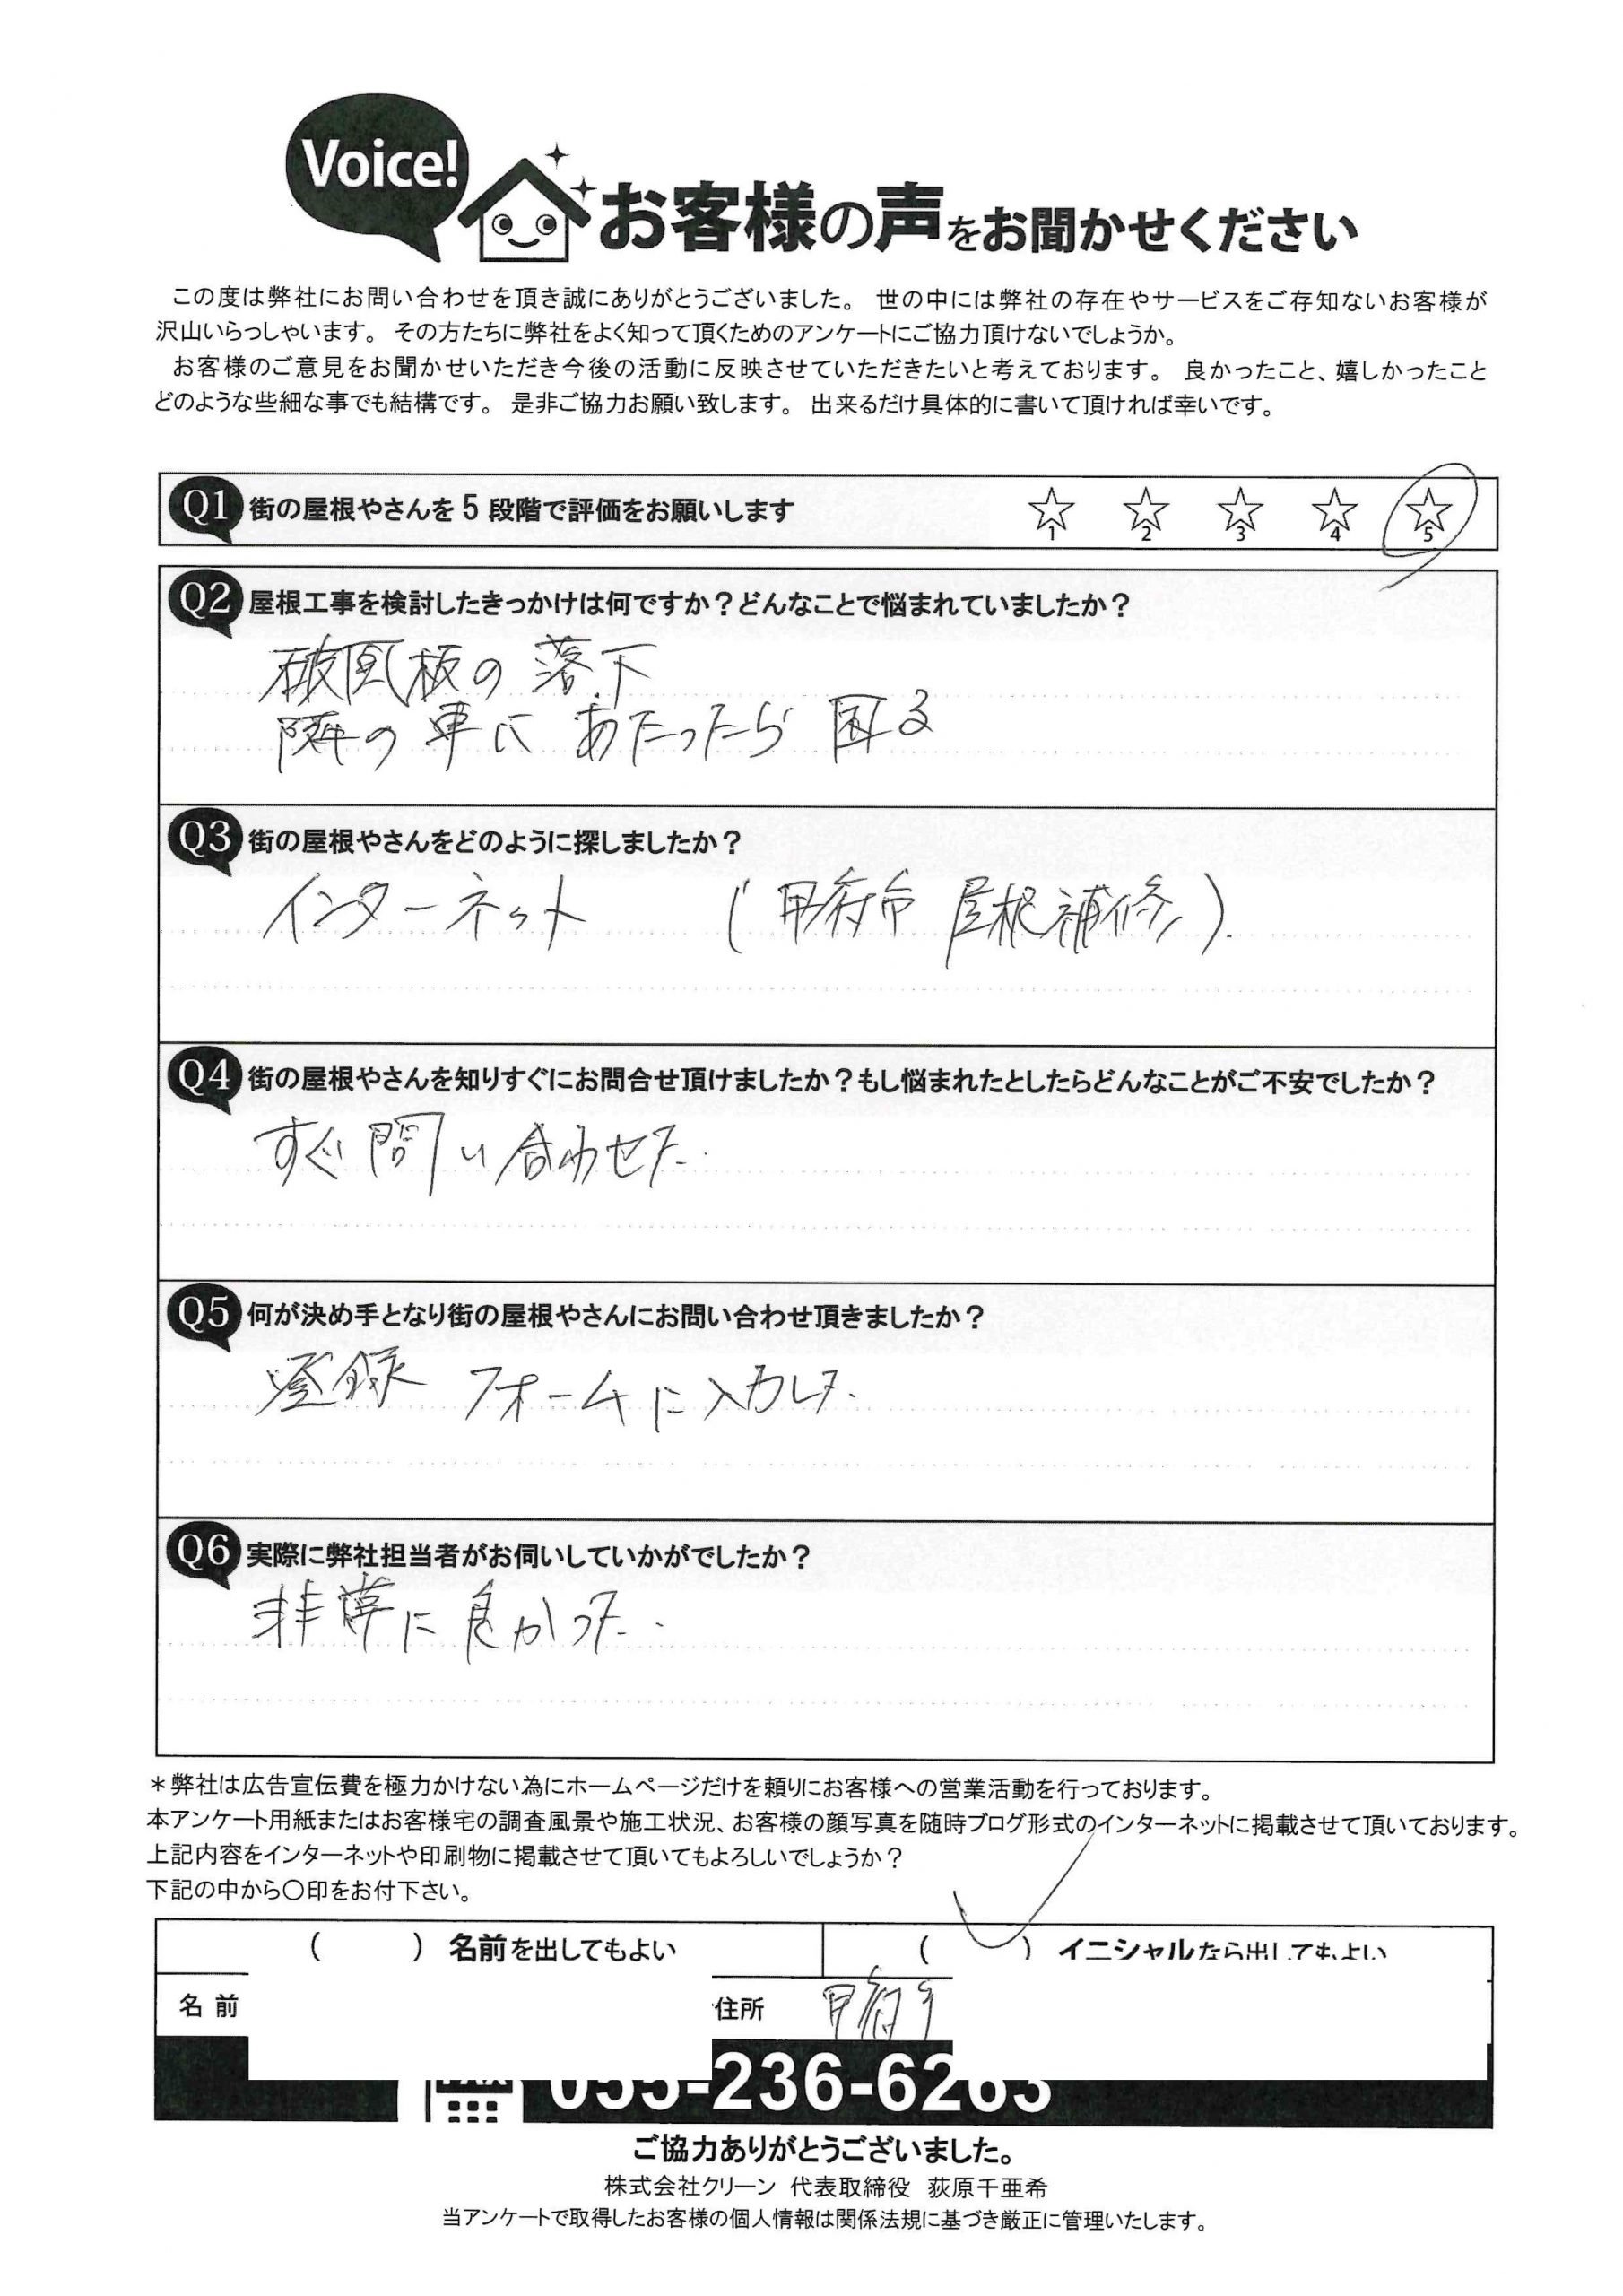 Voice!
お客様の声をお聞かせください
この度は弊社にお問い合わせを頂き誠にありがとうございました。 世の中には弊社の存在やサービスをご存知ないお客様が
沢山いらっしゃいます。 その方たちに弊社をよく知って頂くためのアンケートにご協力頂けないでしょうか。
お客様のご意見をお聞かせいただき今後の活動に反映させていただきたいと考えております。 良かったこと、嬉しかったこと
どのような些細な事でも結構です。 是非ご協力お願い致します。 出来るだけ具体的に書いて頂ければ幸いです。
Q1 街の屋根やさんを5段階で評価をお願いします ☆1 ☆2 ☆3 ☆4 ☆5
Q2 屋根工事を検討したきっかけは何ですか？どんなことで悩まれていましたか？
破風板の落下
隣の車にあたったら困る
Q3 街の屋根やさんをどのように探しましたか？
インターネット (甲府市 屋根補修).
Q4 街の屋根やさんを知りすぐにお問合せ頂けましたか？もし悩まれたとしたらどんなことがご不安でしたか？
すぐ問い合わせた.
Q5 何が決め手となり街の屋根やさんにお問い合わせ頂きましたか？
登録フォームに入力した.
Q6 実際に弊社担当者がお伺いしていかがでしたか？
非常に良かった.
＊弊社は広告宣伝費を極力かけない為にホームページだけを頼りにお客様への営業活動を行っております。
本アンケート用紙またはお客様宅の調査風景や施工状況、お客様の顔写真を随時ブログ形式のインターネットに掲載させて頂いております。
上記内容をインターネットや印刷物に掲載させて頂いてもよろしいでしょうか？
下記の中から〇印をお付下さい。
( ) 名前を出してもよい ( ) イニシャルなら出してもよい
名前 住所 甲府市
055-236-6263
ご協力ありがとうございました。
株式会社クリーン 代表取締役 荻原千亜希
当アンケートで取得したお客様の個人情報は関係法規に基づき厳正に管理いたします。